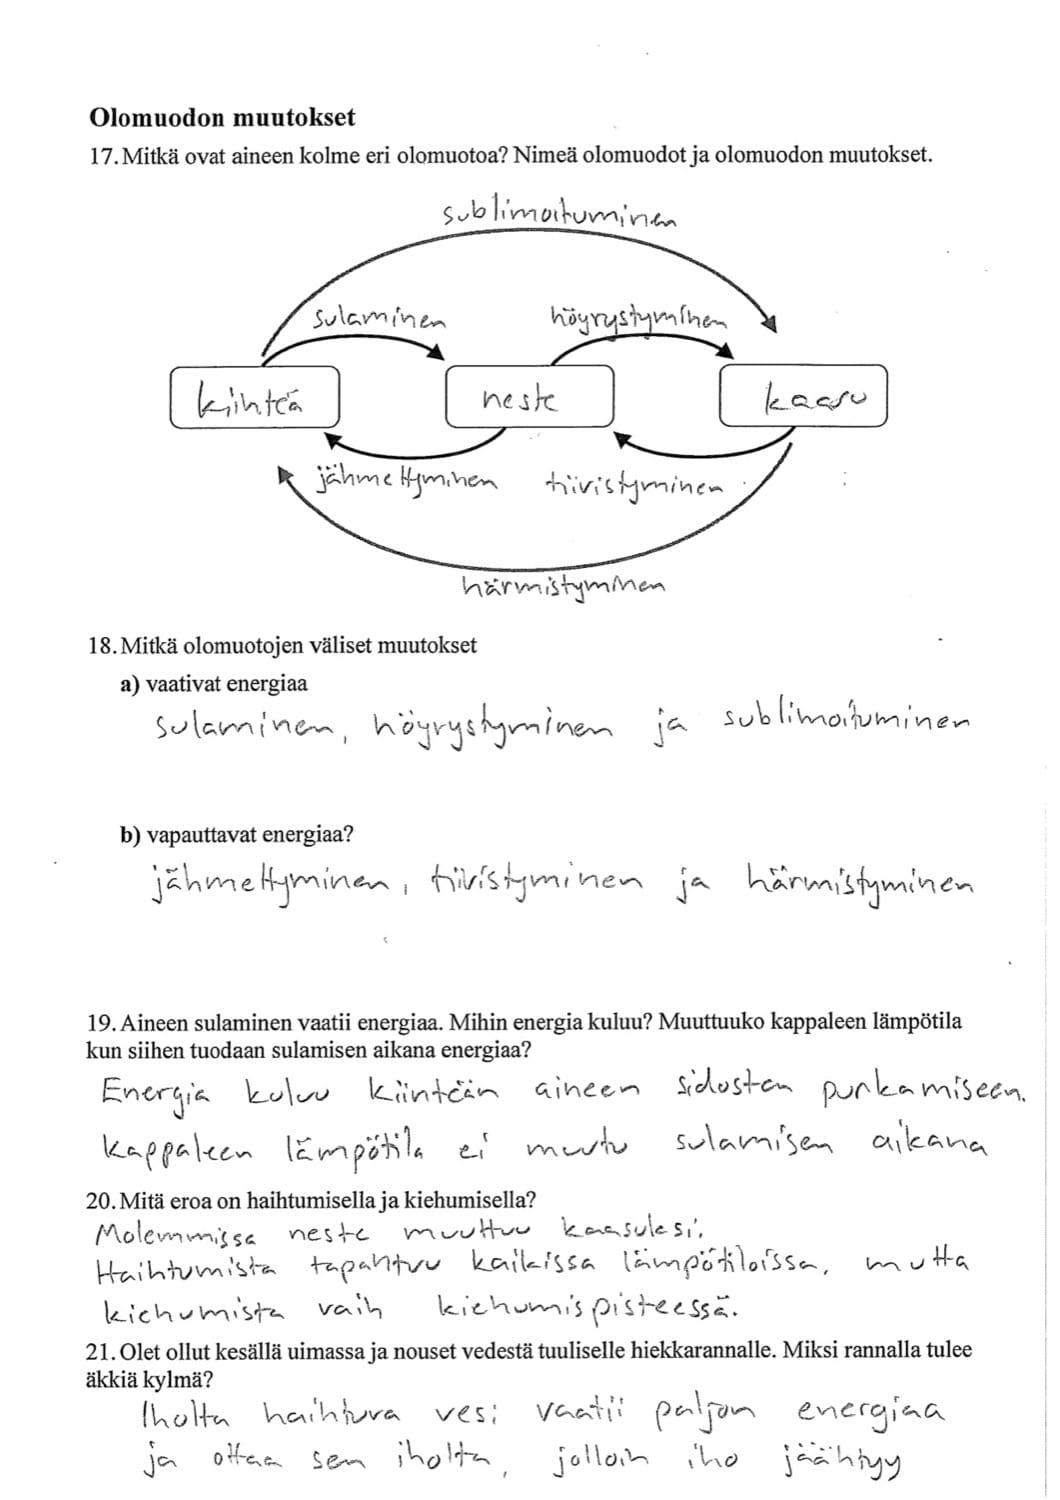 Olomuodon muutokset
17. Mitkä ovat aineen kolme eri olomuotoa? Nimeä olomuodot ja olomuodon muutokset.
sublimoituminen
sulaminen höyrystyminen
kiinteä neste kaasu
jähmettyminen tiivistyminen
härmistyminen
18. Mitkä olomuotojen väliset muutokset
a) vaativat energiaa
sulaminen, höyrystyminen ja sublimoituminen
b) vapauttavat energiaa?
jähmettyminen, tiivistyminen ja härmistyminen
19. Aineen sulaminen vaatii energiaa. Mihin energia kuluu? Muuttuuko kappaleen lämpötila
kun siihen tuodaan sulamisen aikana energiaa?
Energia kuluu kiinteän aineen sidosten purkamiseen.
kappaleen lämpötila ei muutu sulamisen aikana
20. Mitä eroa on haihtumisella ja kiehumisella?
Molemmissa neste muuttuu kaasuksi.
Haihtumista tapahtuu kaikissa lämpötiloissa, mutta
kiehumista vain kiehumispisteessä.
21. Olet ollut kesällä uimassa ja nouset vedestä tuuliselle hiekkarannalle. Miksi rannalla tulee
äkkiä kylmä?
Iholta haihtuva vesi vaatii paljon energiaa
ja ottaa sen iholta, jolloin iho jäähtyy